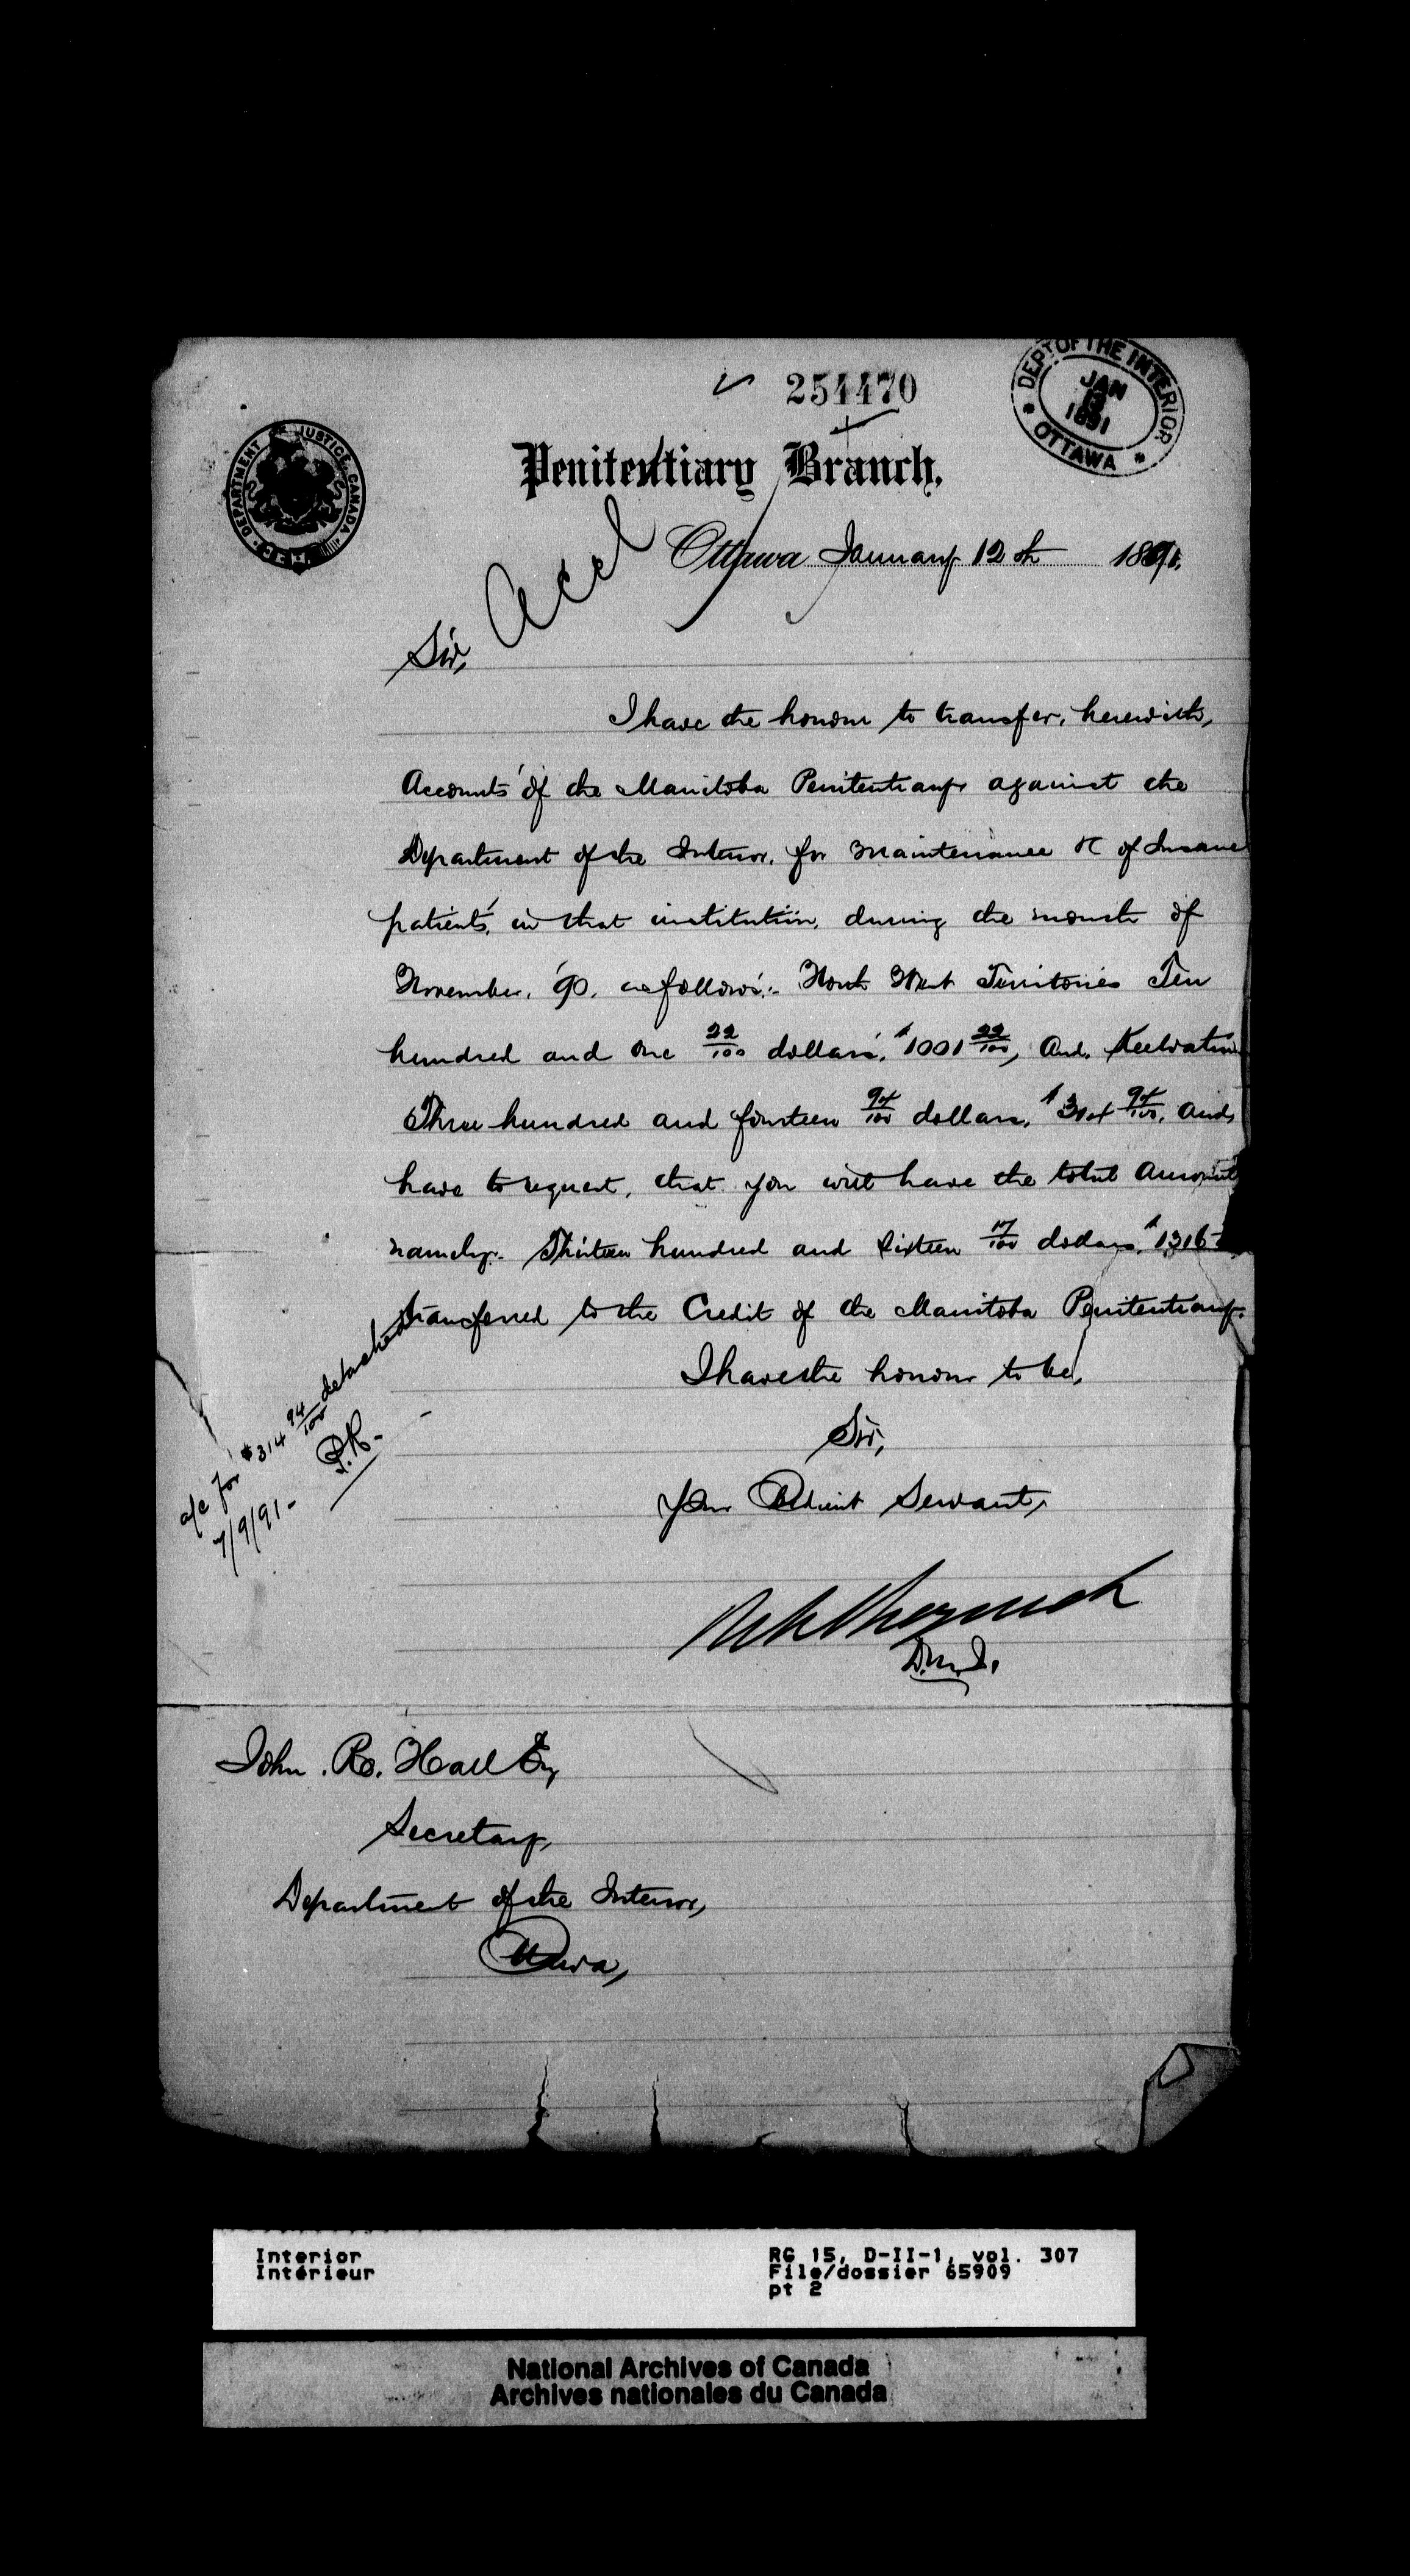 254470
DEPT OF THE INTERIOR
JAN
13
1891
OTTAWA
DEPARTMENT OF JUSTICE, CANADA
Penitentiary Branch.
Ottawa January 12th 1891.
Sir,
I have the honour to transfer, herewith,
Accounts of the Manitoba Penitentiary against the
Department of the Interior, for maintenance &c of Insane
patients, in that institution, during the month of
November, '90, as follows:- North West Territories Ten
hundred and one 22/100 dollars, $1001 22/100, and, Keewatin
Three hundred and fourteen 94/100 dollars, $314 94/100, and,
have to request, that you will have the total amount
namely:- Thirteen hundred and sixteen 17/100 dollars, $1316
transferred to the Credit of the Manitoba Penitentiary.
a/c for $314 94/100 detached
7/9/91 -
P.R.-
I have the honour to be,
Sir,
Your Obedient Servant,
D.M.J.
John. R. Hall Esq
Secretary,
Department of the Interior,
Ottawa,
Interior
Intérieur
RG 15, D-II-1, vol. 307
File/dossier 65909
pt 2
National Archives of Canada
Archives nationales du Canada